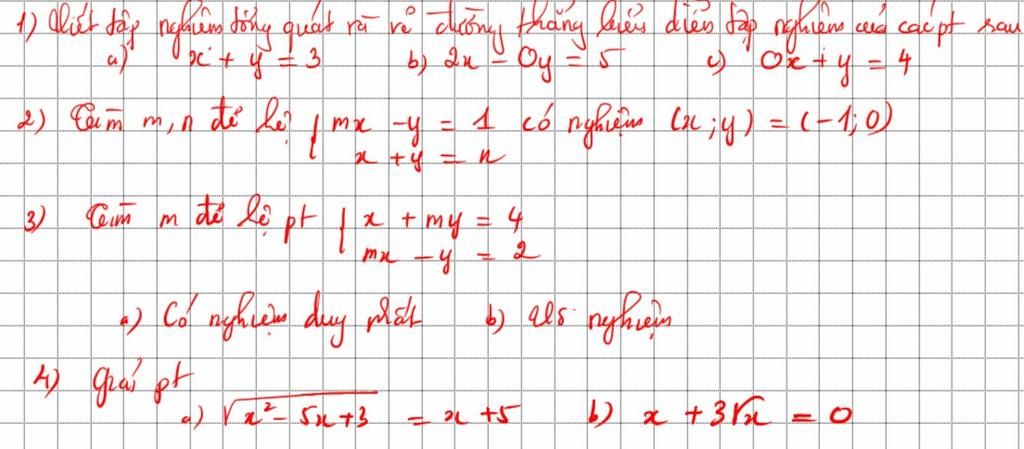 1) Viết tập nghiệm tổng quát và vẽ đường thẳng biểu diễn tập nghiệm của các pt sau
a) x + y = 3 b) 2x - 0y = 5 c) 0x + y = 4
2) Tìm m, n để hệ { mx - y = 1 có nghiệm (x ; y) = (-1; 0)
x + y = n
3) Tìm m để hệ pt { x + my = 4
mx - y = 2
a) Có nghiệm duy nhất b) nghiệm
4) Giải pt
a) √(x² - 5x + 3) = x + 5 b) x + 3√x = 0